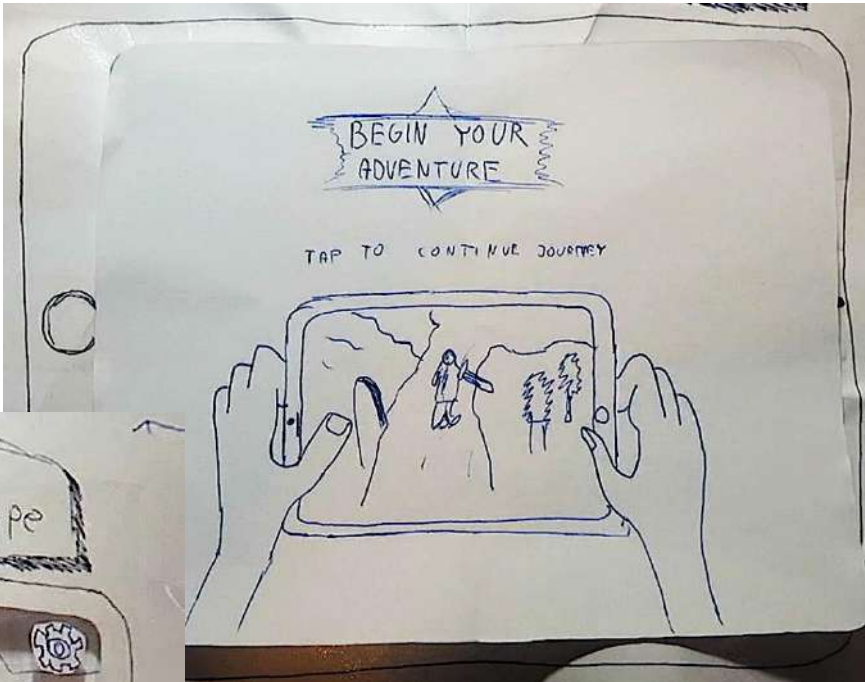 BEGIN YOUR
ADVENTURE
TAP TO CONTINUE JOURNEY
pe